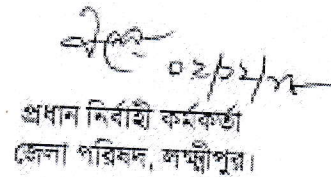 ০২/০২/
প্রধান নির্বাহী কর্মকর্তা
জেলা পরিষদ, লক্ষ্মীপুর।